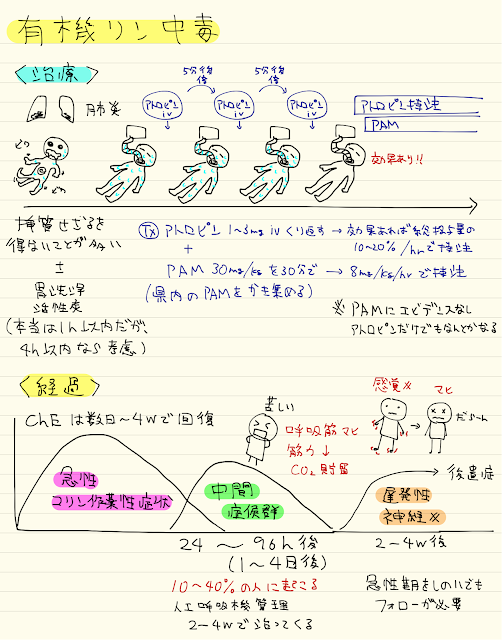 有機リン中毒
〈治療〉
肺炎
5分後
5分後
アトロピン iv
アトロピン iv
アトロピン iv
アトロピン持注
PAM
効果あり!!
挿管せざるを
得ないことが多い
±
胃洗浄
活性炭
(本当は1h以内だが、
4h以内なら考慮)
Tx アトロピン 1~3mg iv くり返す → 効果あれば総投与量の
10~20%/hrで持注
+
PAM 30mg/kgを30分で → 8mg/kg/hrで持注
(県内のPAMをかき集める)
※ PAMにエビデンスなし
アトロピンだけでもなんとかなる
〈経過〉
ChEは数日~4wで回復
苦しい
呼吸筋マヒ
筋力↓
CO₂貯留
感覚※
マヒ
だらーん
急性
コリン作薬性症状
中間
症候群
遅発性
神経※
後遺症
24~96h後
(1~4日後)
2~4w後
10~40%の人に起こる
人工呼吸機管理
2~4wで治ってくる
急性期をしのいでも
フォローが必要